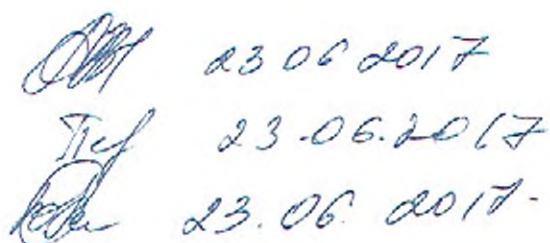 23 06 2017
23.06.2017
23.06.2017.